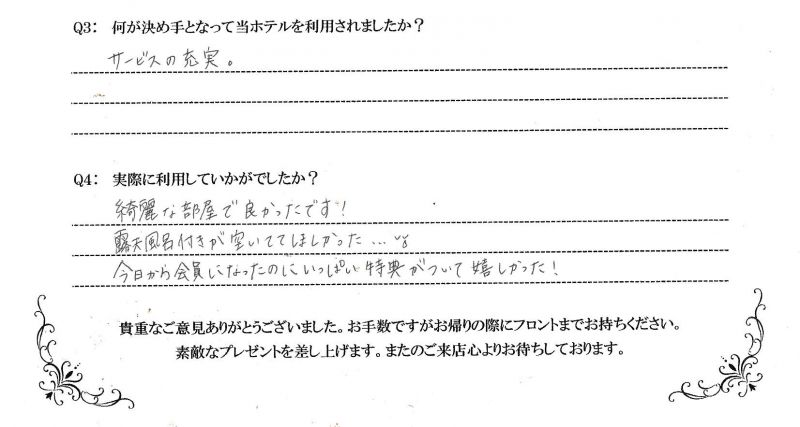 Q3: 何が決め手となって当ホテルを利用されましたか？
サービスの充実。
Q4: 実際に利用していかがでしたか？
綺麗な部屋で良かったです！
露天風呂付きが空いててほしかった…
今日から会員になったのにいっぱい特典がついて嬉しかった！
貴重なご意見ありがとうございました。お手数ですがお帰りの際にフロントまでお持ちください。
素敵なプレゼントを差し上げます。またのご来店心よりお待ちしております。